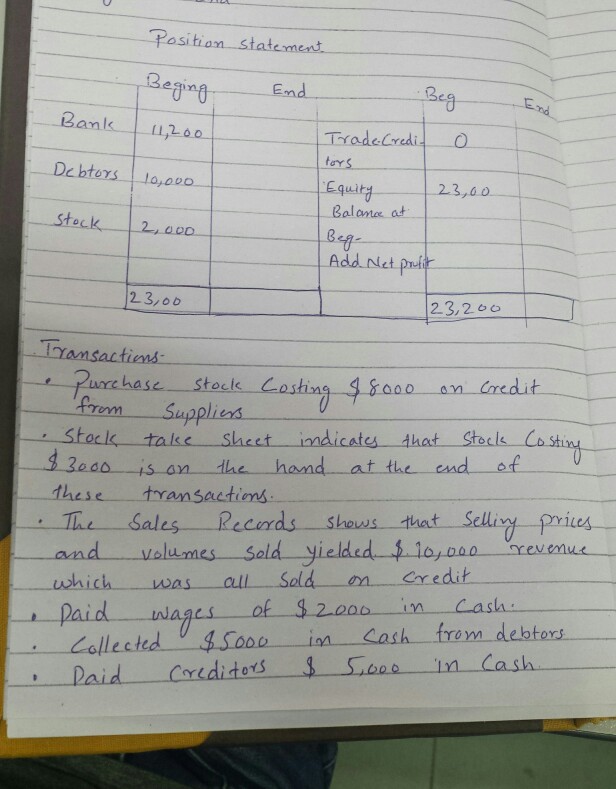 Position statement
Beging End Beg End
Bank 11,200 Trade Credi-
tors 0
Debtors 10,000 Equity 23,00
Balance at
Stock 2,000 Beg-
Add Net profit
23,00 23,200
Transactions-
• Purchase stock Costing $8000 on credit
from Suppliers
• Stock take sheet indicates that Stock Costing
$3000 is on the hand at the end of
these transactions.
• The Sales Records shows that Selling prices
and volumes sold yielded $ 10,000 revenue
which was all Sold on credit
• Paid wages of $2000 in Cash.
• Collected $5000 in Cash from debtors
• Paid Creditors $ 5,000 in Cash.